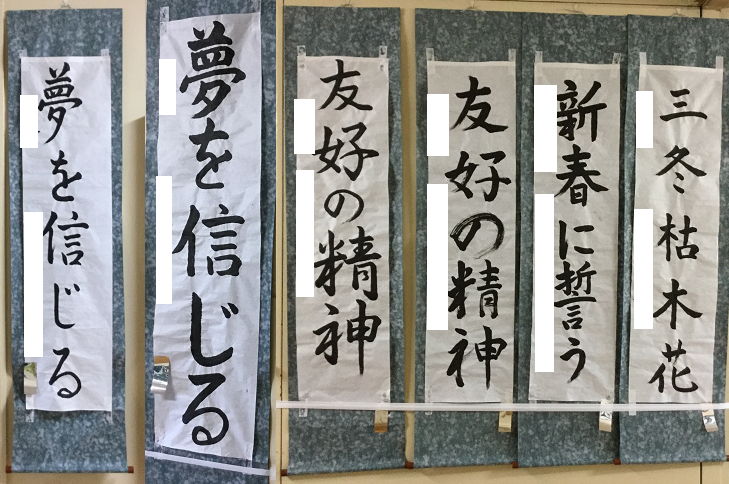 夢を信じる
夢を信じる
友好の精神
友好の精神
新春に誓う
三冬枯木花